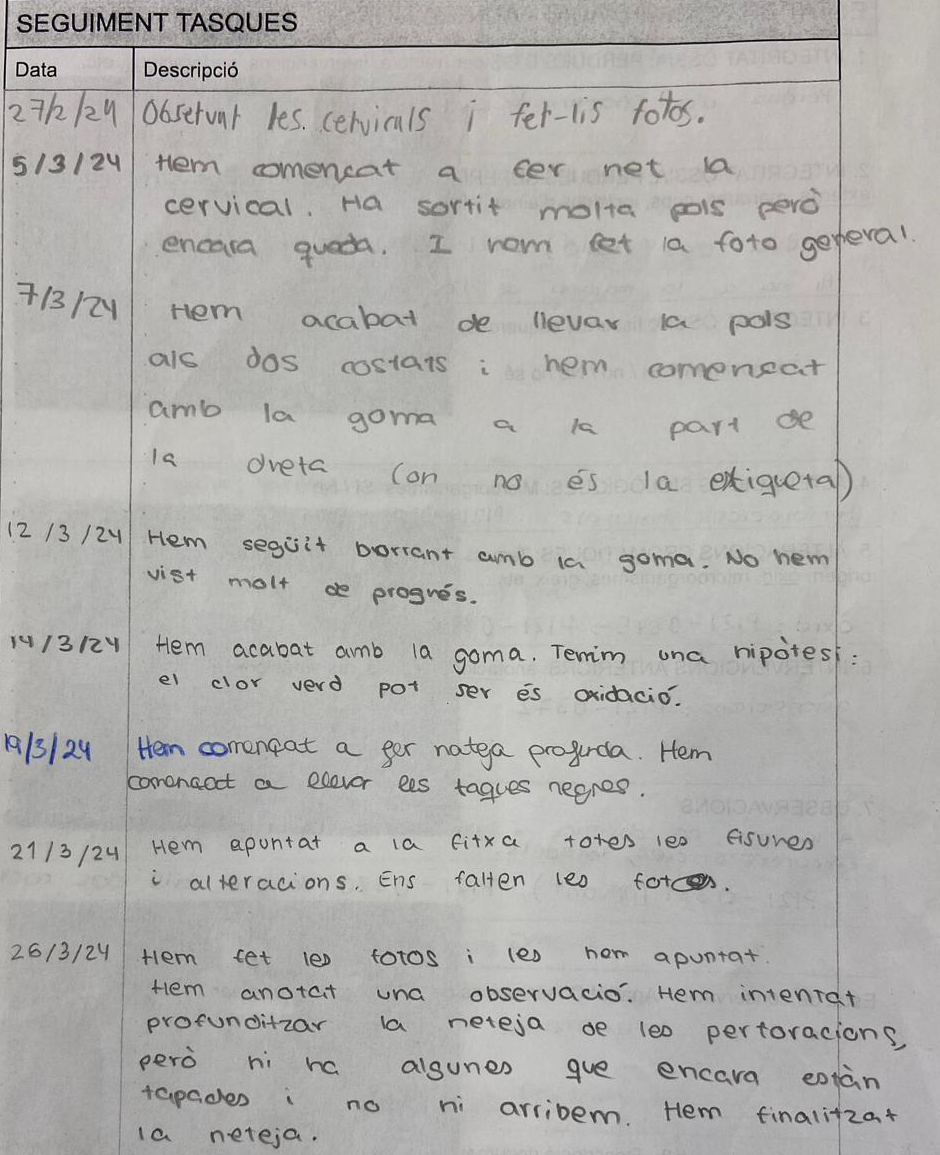 SEGUIMENT TASQUES
Data Descripció
27/2/24 Observant les cervicals i fet-lis fotos.
5/3/24 Hem comencat a fer net la
cervical. Ha sortit molta pols però
encara queda. I hem fet la foto general.
7/3/24 Hem acabat de llevar la pols
als dos costats i hem comensat
amb la goma a la part de
la dreta (on no és la etiqueta)
12/3/24 Hem següit borrant amb la goma. No hem
vist molt de progrés.
14/3/24 Hem acabat amb la goma. Tenim una hipòtesi:
el clor verd pot ser és oxidació.
19/3/24 Hem començat a fer nateja profunda. Hem
comencat a llevar les taques negres.
21/3/24 Hem apuntat a la fitxa totes les fisures
i alteracions. Ens falten les fotos.
26/3/24 Hem fet les fotos i les hem apuntat.
Hem anotat una observació. Hem intentat
profunditzar la neteja de les perforacions,
però hi ha algunes que encara estàn
tapades i no hi arribem. Hem finalitzat
la neteja.